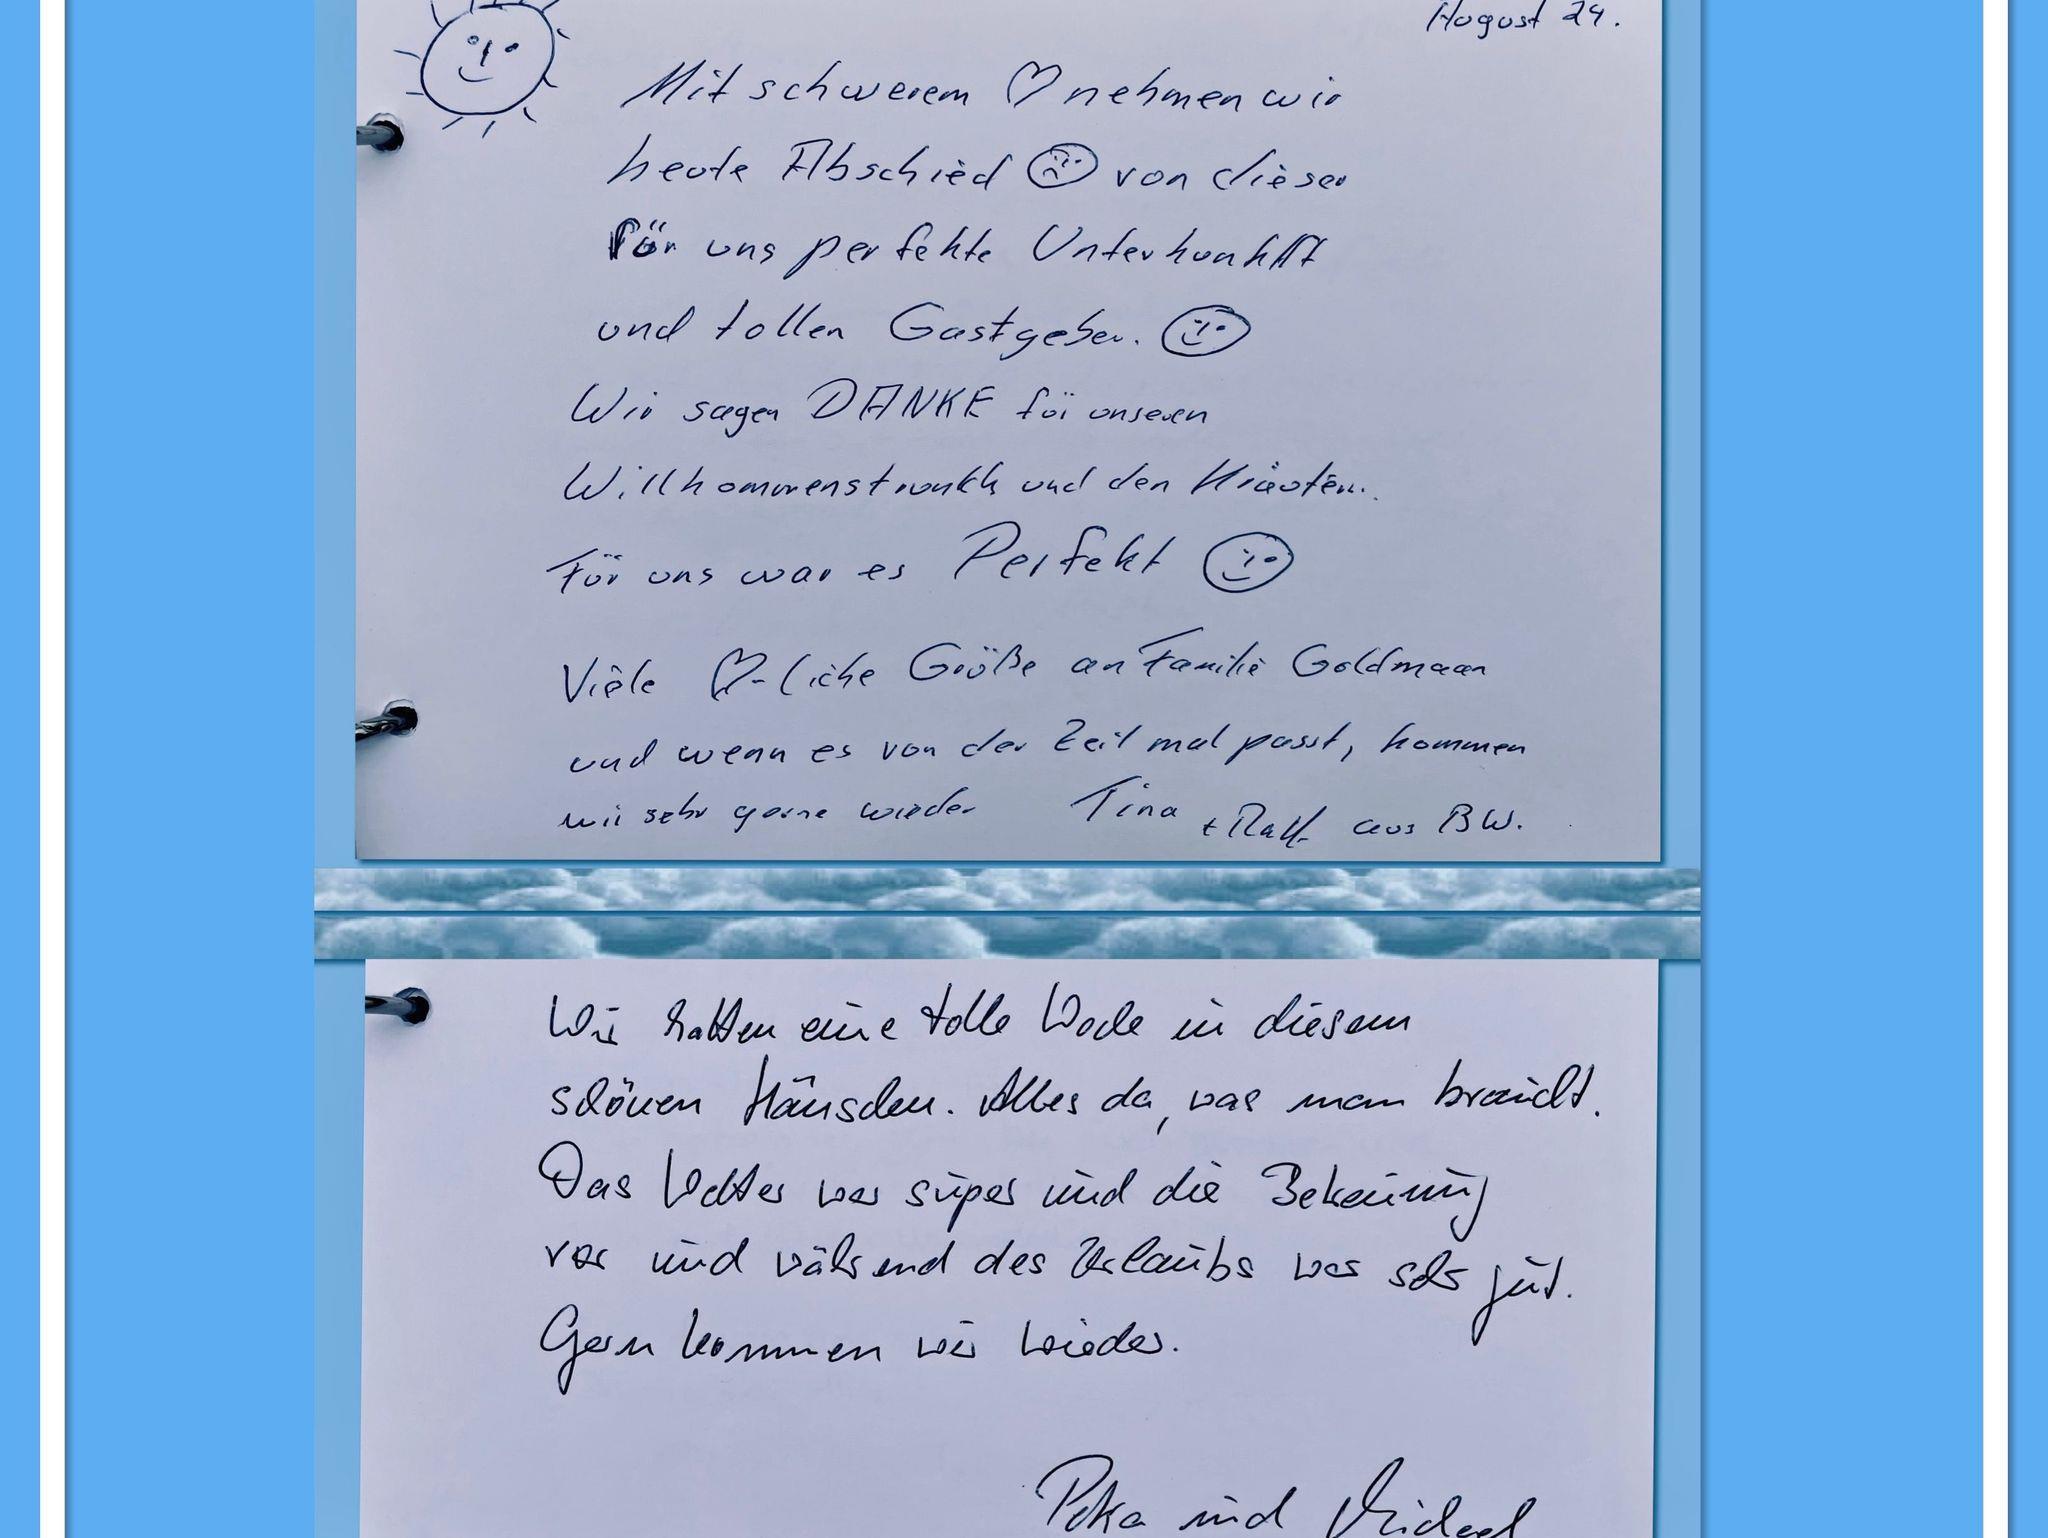 August 24.
Mit schwerem ♡ nehmen wir
heute Abschied ☹ von dieser
für uns perfekte Unterkunft
und tollen Gastgeber. ☺
Wir sagen DANKE für unseren
Willkommenstrunkk und den Kräutern.
Für uns war es Perfekt ☺
Viele ♡-liche Grüße an Familie Goldmann
und wenn es von der Zeit mal passt, kommen
wir sehr gerne wieder Tina + Ralf aus BW.
Wir hatten eine tolle Woche in diesem
schönen Häuschen. Alles da, was man braucht.
Das Wetter war super und die Betreuung
vor und während des Urlaubs war sehr gut.
Gern kommen wir wieder.
und Michael